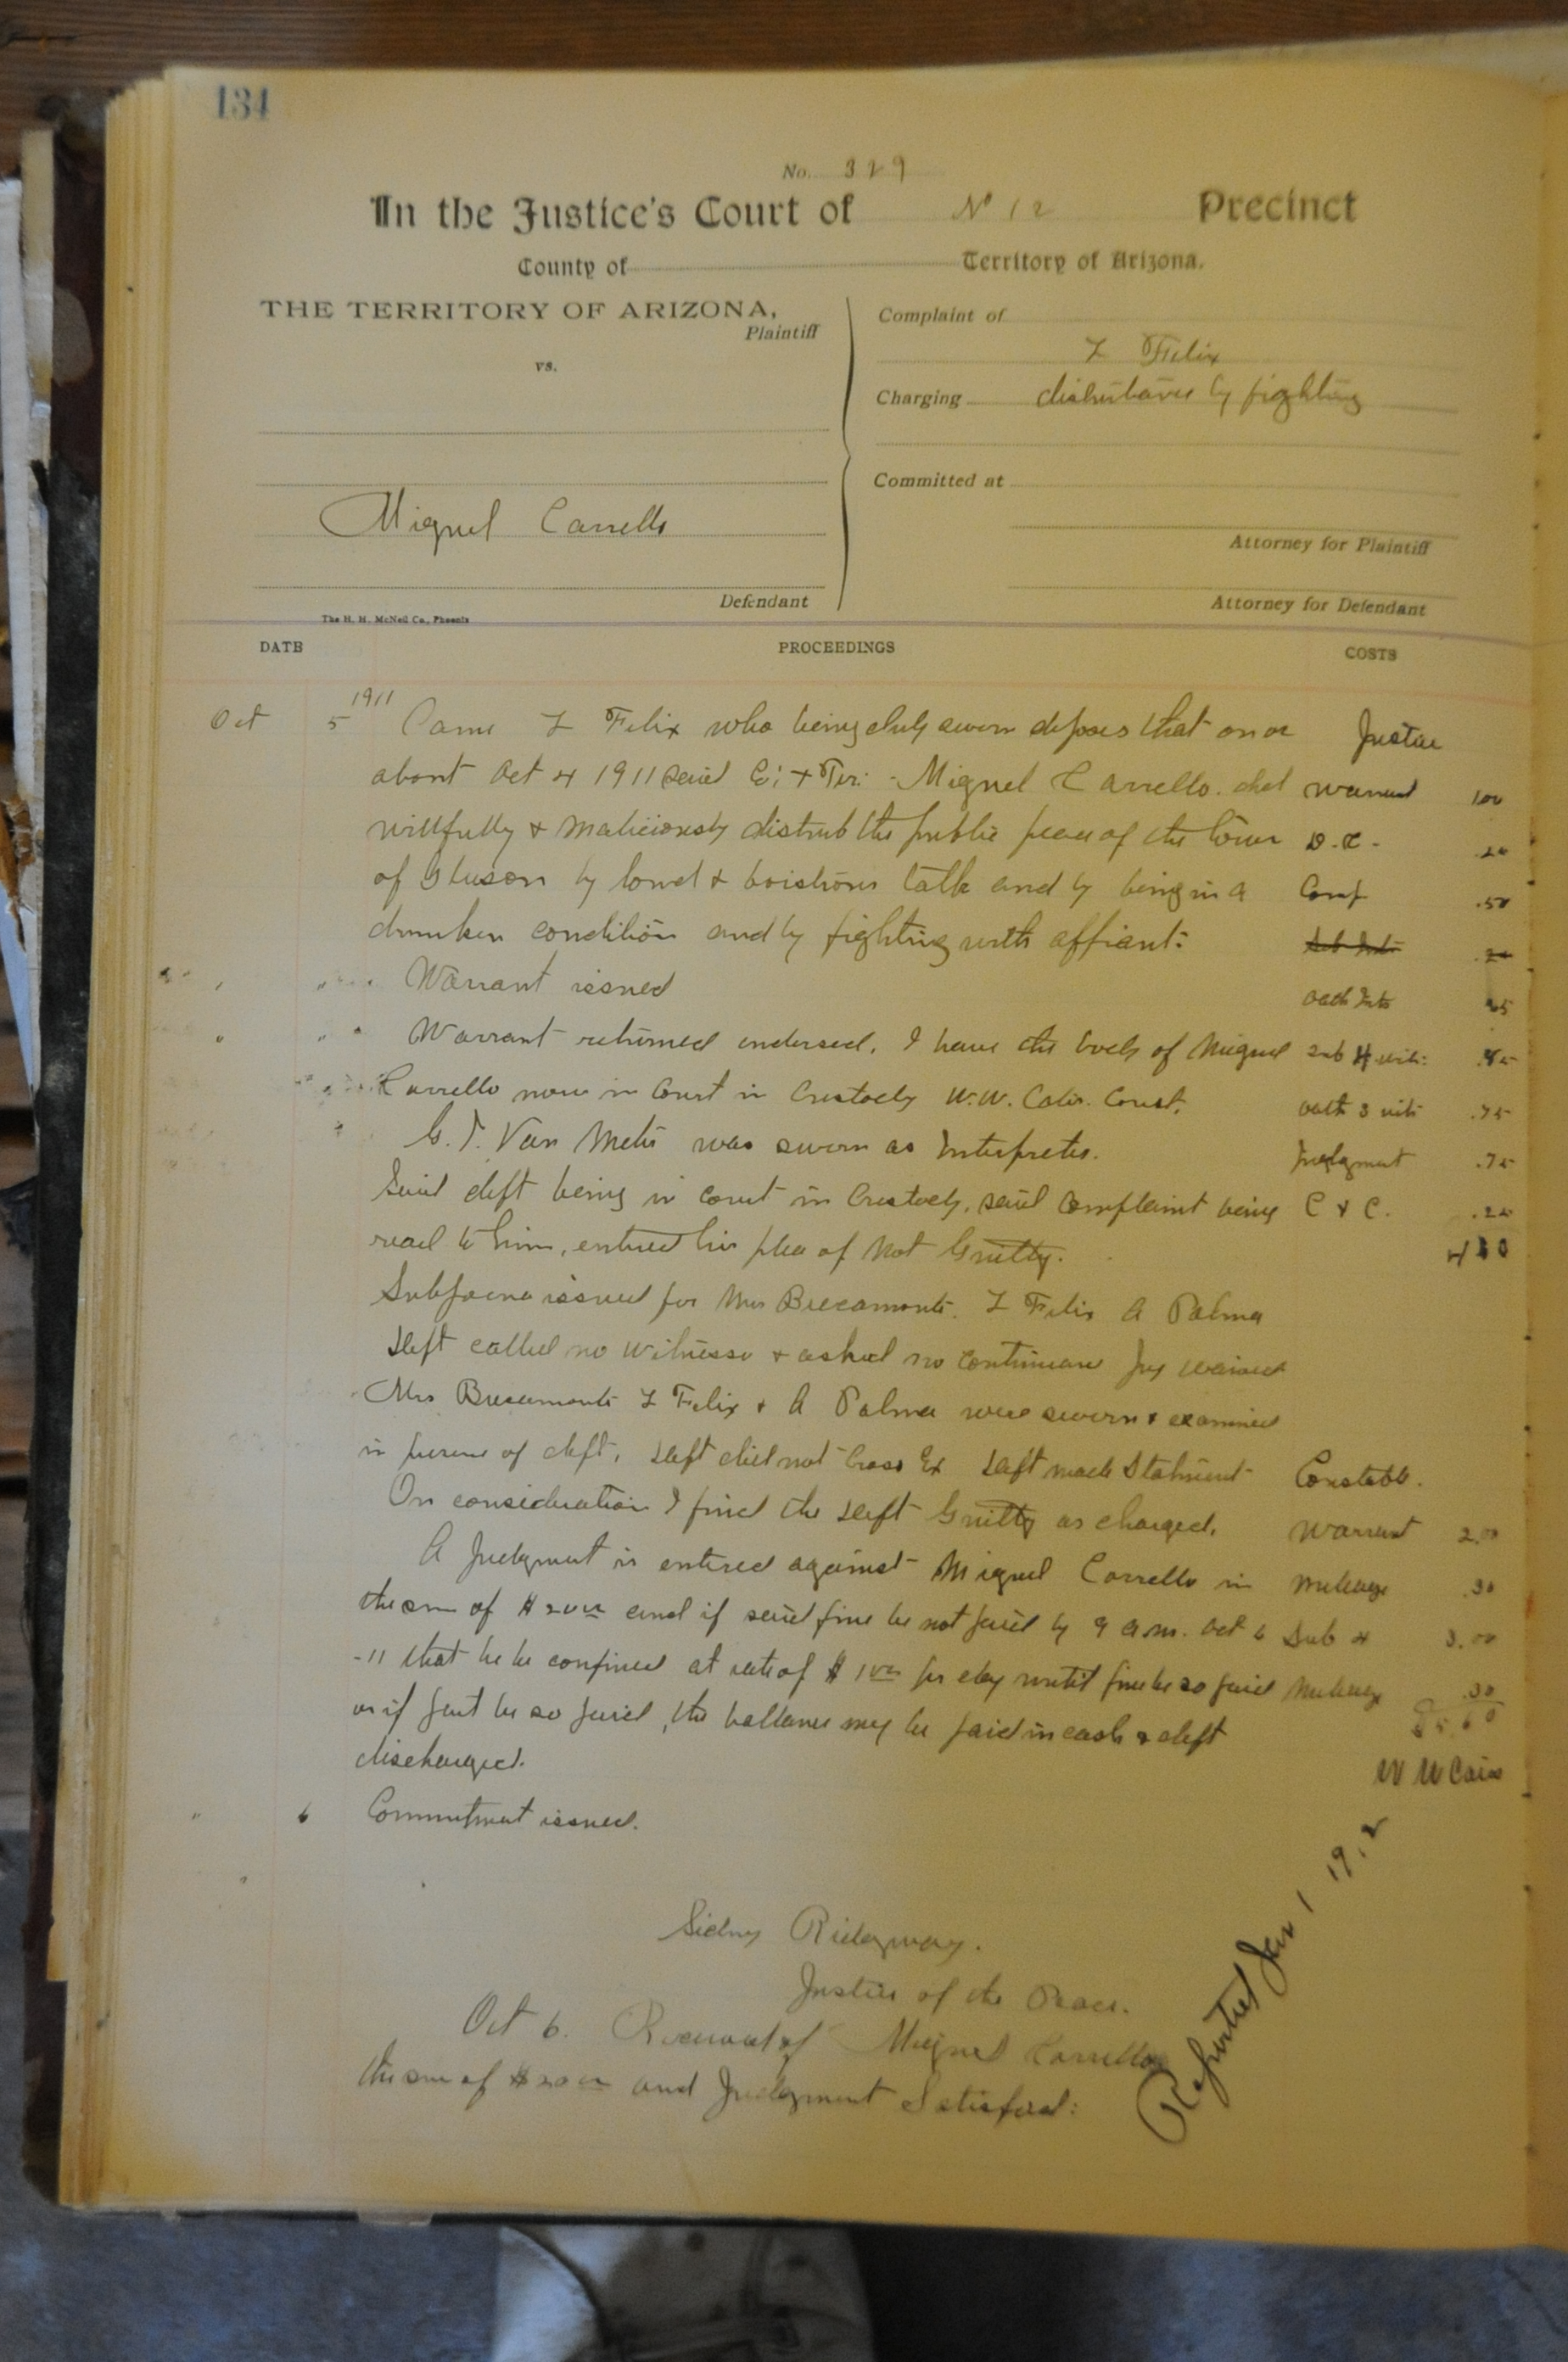 134
No. 329
In the Justice's Court of No 12 Precinct
County of Territory of Arizona.
THE TERRITORY OF ARIZONA,
Plaintiff
vs.
Miguel Carrello
Defendant
The H. H. McNeil Co., Phoenix
Complaint of
Z Felix
Charging disturbance by fighting
Committed at
Attorney for Plaintiff
Attorney for Defendant
DATE PROCEEDINGS COSTS
Oct 5 1911 Came Z Felix who being duly sworn deposes that on or Justice
about Oct 4 1911 said Co; & Ter: Miguel Carrello. did Warrant 100
willfully & maliciously distrub the public peace of the town
of by loud & boistrous talk and by being in a Comp .50
drunken condition and by fighting with affiant:
" " Warrant issued oath
" " Warrant returned endorsed, I have the body of Miguel Sub 4 wit:
Carrello now in Court in Custody W.W. Cain. Const. oath 3 wit .75
G. J. Van Meter was sworn as Interpreter. Judgment .75
Said deft being in Court in Custody, said Complaint being C & C.
read to him, entered his plea of Not Guilty.
Subpoena issued for Mrs Bucamonte. Z Felix A Palma
Deft called no witnesses & asked no continuance Jury waived
Mrs Bucamonte Z Felix & A Palma were sworn & examined
in presence of deft, Deft did not Cross Ex Deft made Statment Constable.
On consideration I find the Deft Guilty as charged. Warrant 2.00
A Judgment is entered against Miguel Carrello in Mileage .30
the sum of $20 00 and if said fine be not paid by 9 a.m. Oct 6 Sub 4 3.00
-11 that he be confined at rate of $1 00 per day until fine be so paid Mileage .30
or if part be so paid, the ballance may be paid in cash & deft 5.60
discharged. W W Cain
" 6 Commitment issued.
Sidney Ridgway.
Justice of the Peace.
Oct 6. Received of Miguel Carrello
the sum of $20 00 and Judgment Satisfied:
Reported Jan 1 1912